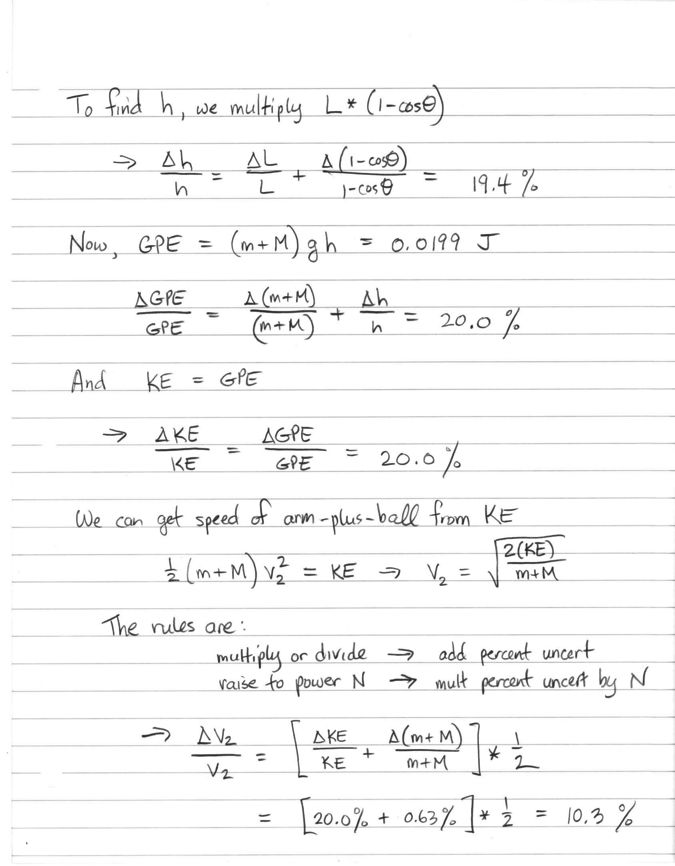 To find h, we multiply L * (1-cosθ)
→ Δh/h = ΔL/L + Δ(1-cosθ)/1-cosθ = 19.4 %
Now, GPE = (m+M) g h = 0.0199 J
ΔGPE/GPE = Δ(m+M)/(m+M) + Δh/h = 20.0 %
And KE = GPE
→ ΔKE/KE = ΔGPE/GPE = 20.0 %
We can get speed of arm-plus-ball from KE
½ (m+M) V₂² = KE → V₂ = √(2(KE)/m+M)
The rules are:
multiply or divide → add percent uncert
raise to power N → mult percent uncert by N
→ ΔV₂/V₂ = [ΔKE/KE + Δ(m+M)/m+M] * ½
= [20.0% + 0.63%] * ½ = 10.3 %